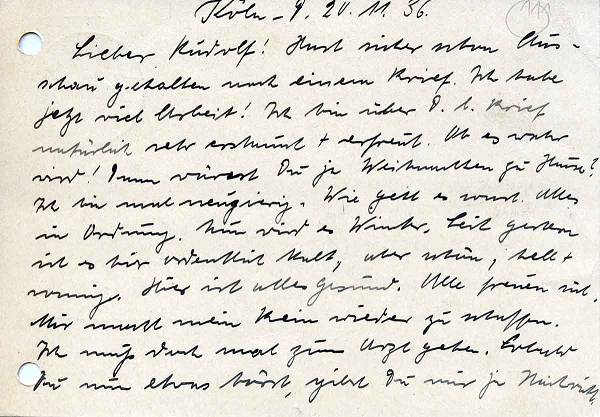 Köln - P. 20.11.36.
Lieber Rudolf! Hast sicher schon Aus-
schau gehalten nach einem Brief. Ich habe
jetzt viel Arbeit! Ich bin über D. l. Brief
natürlich sehr erstaunt + erfreut. Ob es wahr
wird! Dann wärest Du ja Weihnachten zu Hause?
Ich bin mal neugierig. Wie geht es sonst. Alles
in Ordnung. Nun wird es Winter. Seit gestern
ist es hier ordentlich kalt, aber schön, hell +
sonnig. Hier ist alles gesund. Alle freuen sich.
Mir macht mein Bein wieder zu schaffen.
Ich muß doch mal zum Arzt gehen. Sobald
Du nun etwas hörst, gibst Du mir ja Nachricht.